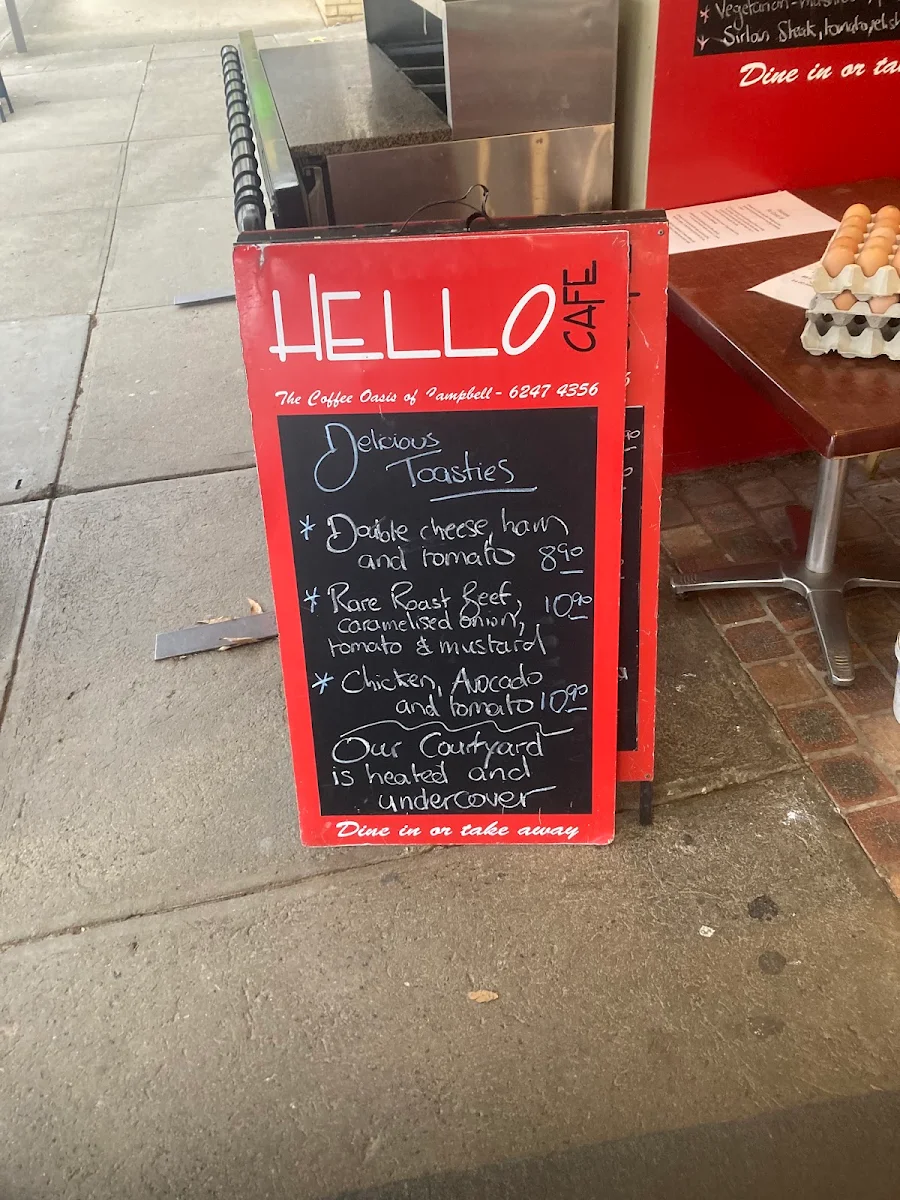 Vegetarian-
* Sirloin Steak, tomato,
Dine in or
HELLO CAFE
The Coffee Oasis of Campbell - 6247 4356
Delicious
Toasties
* Double cheese, ham
and tomato 8.90
* Rare Roast Beef, 10.90
caramelised onion,
tomato & mustard
* Chicken, Avocado
and tomato 10.90
Our Courtyard
is heated and
undercover
Dine in or take away